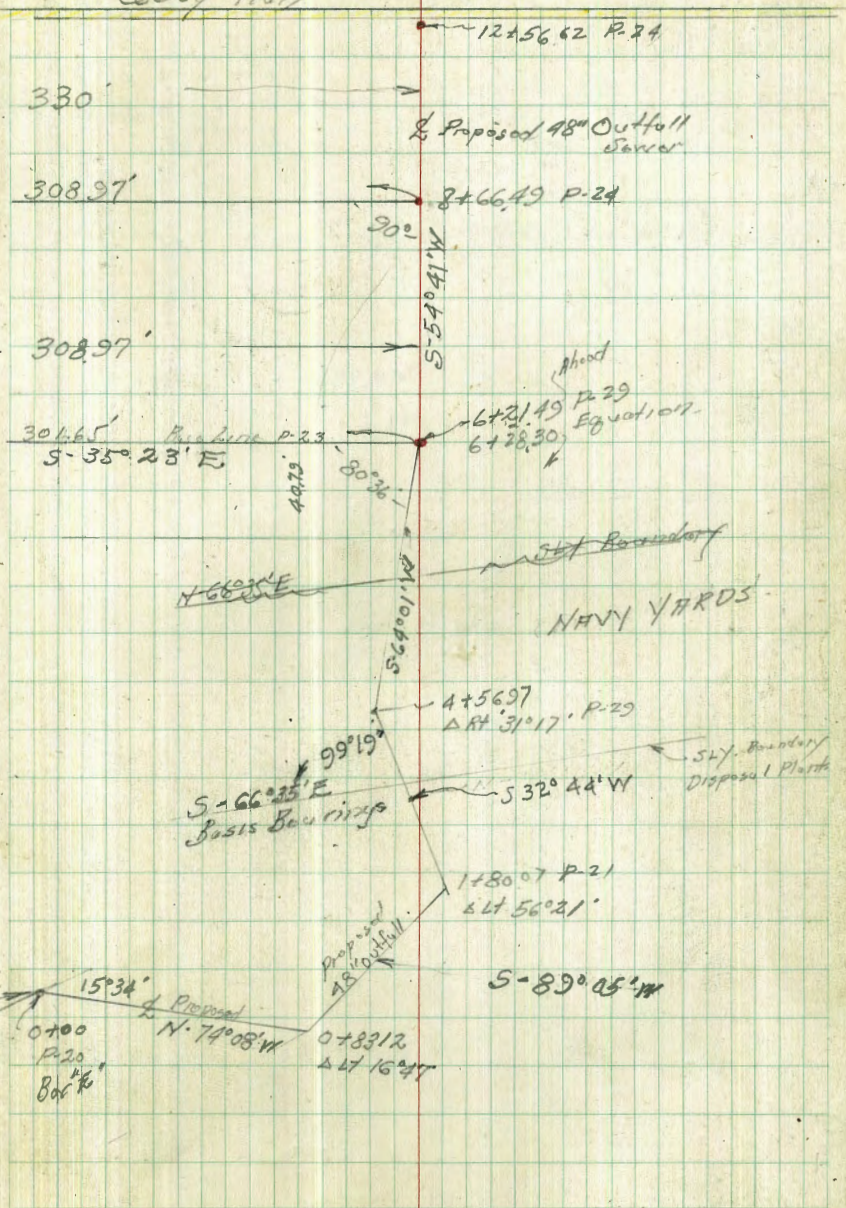 12+56.62 P-24
330'
℄ Proposed 48" Outfall
Sewer
308.97'
8+66.49 P-24
90°
S-54°41'W
308.97'
Ahead
6+21.49 P-29
6+28.30 Equation
301.65' Base Line P-23
S-35°23'E
80°36'
40.79'
N-66°35'E
SLY Boundary
NAVY YARDS
S-64°01'W
4+56.97
Δ Rt 31°17' P-29
99°19'
SLY. Boundary
Disposal Plants
S-66°35'E
Basis Bearings
S 32°44'W
1+80.07 P-21
Δ Lt 56°21'
Proposed
48" Outfall
S-89°05'W
15°34'
℄ Proposed
N-74°08'W
0+00
P-20
0+83.12
Δ Lt 16°47'